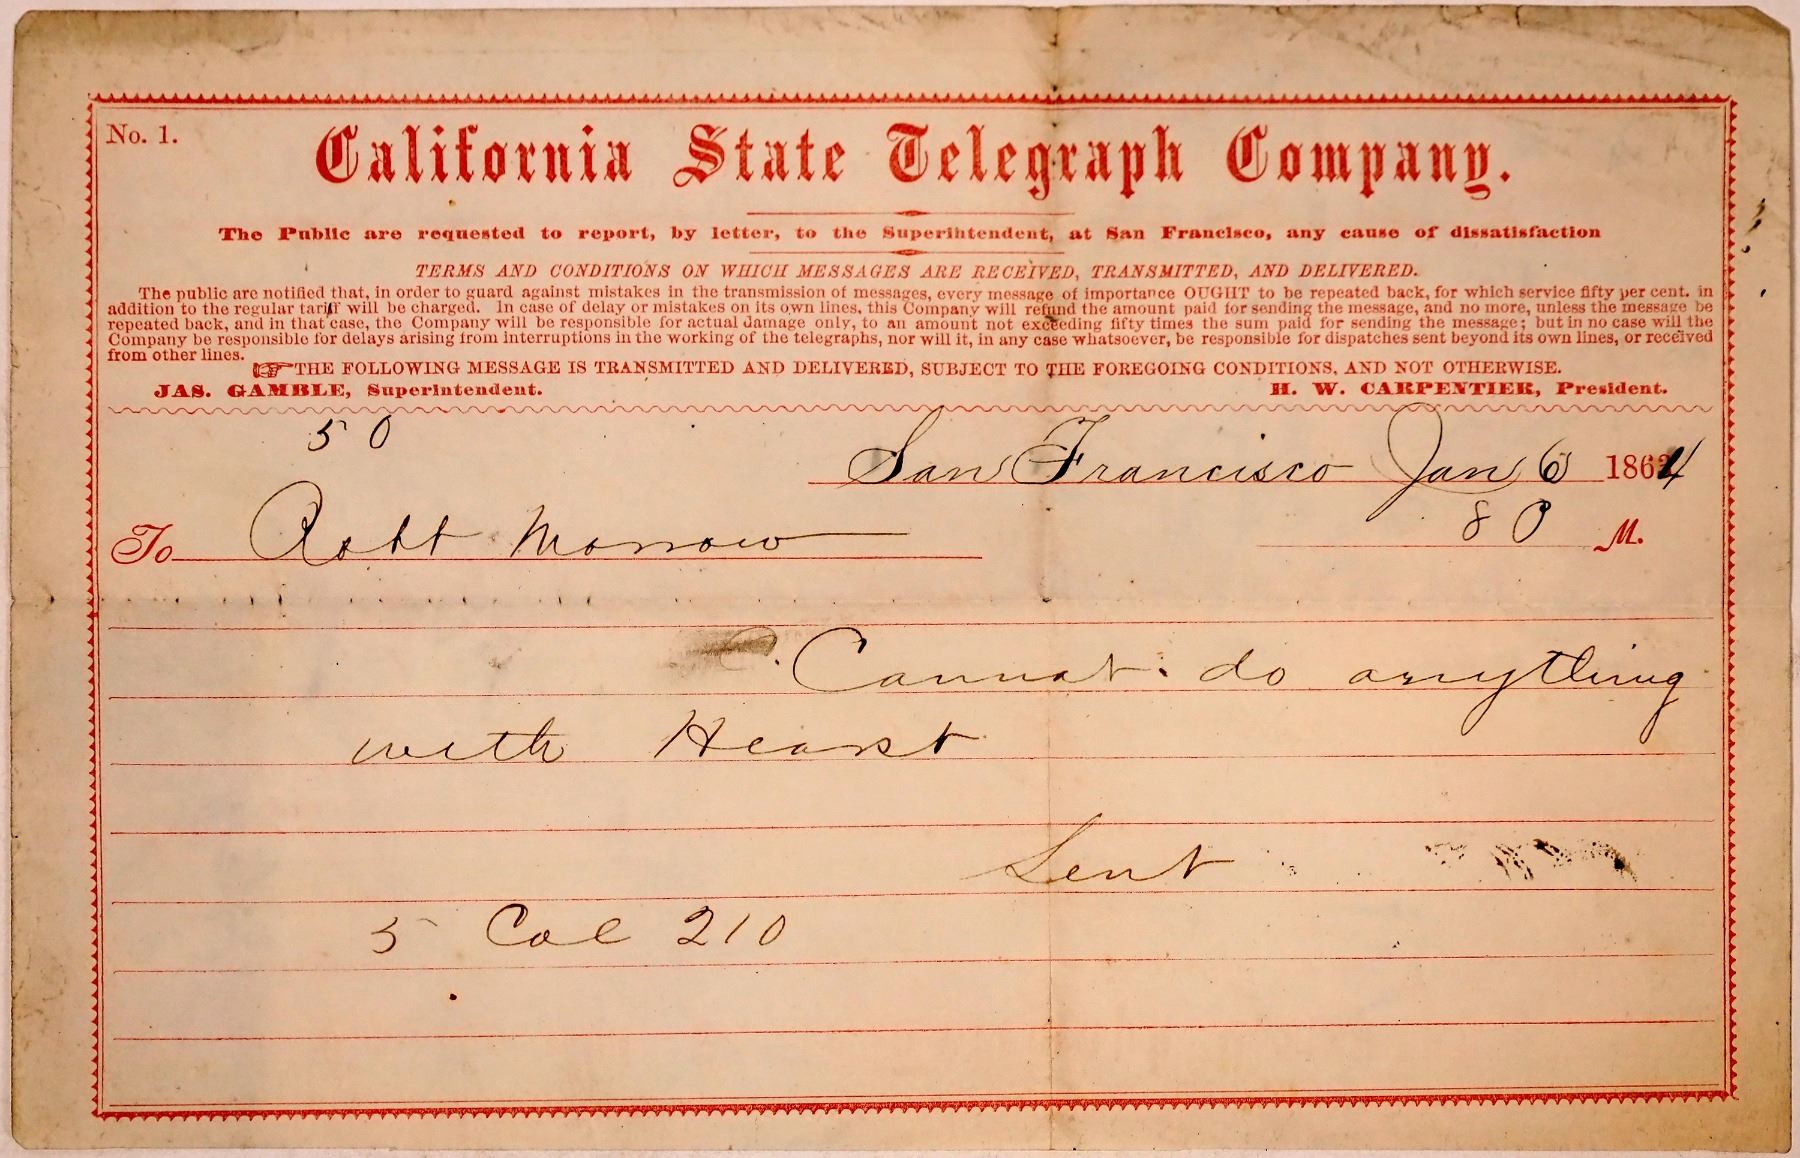 No. 1.
California State Telegraph Company.
The Public are requested to report, by letter, to the Superintendent, at San Francisco, any cause of dissatisfaction
TERMS AND CONDITIONS ON WHICH MESSAGES ARE RECEIVED, TRANSMITTED, AND DELIVERED.
The public are notified that, in order to guard against mistakes in the transmission of messages, every message of importance OUGHT to be repeated back, for which service fifty per cent. in
addition to the regular tariff will be charged. In case of delay or mistakes on its own lines, this Company will refund the amount paid for sending the message, and no more, unless the message be
repeated back, and in that case, the Company will be responsible for actual damage only, to an amount not exceeding fifty times the sum paid for sending the message; but in no case will the
Company be responsible for delays arising from interruptions in the working of the telegraphs, nor will it, in any case whatsoever, be responsible for dispatches sent beyond its own lines, or received
from other lines.
☞THE FOLLOWING MESSAGE IS TRANSMITTED AND DELIVERED, SUBJECT TO THE FOREGOING CONDITIONS, AND NOT OTHERWISE.
JAS. GAMBLE, Superintendent. H. W. CARPENTIER, President.
50
San Francisco Jan 6 1864
To Robt Morrow 80 M.
Cannot do anything
with Hearst
Sent
5 Col 210